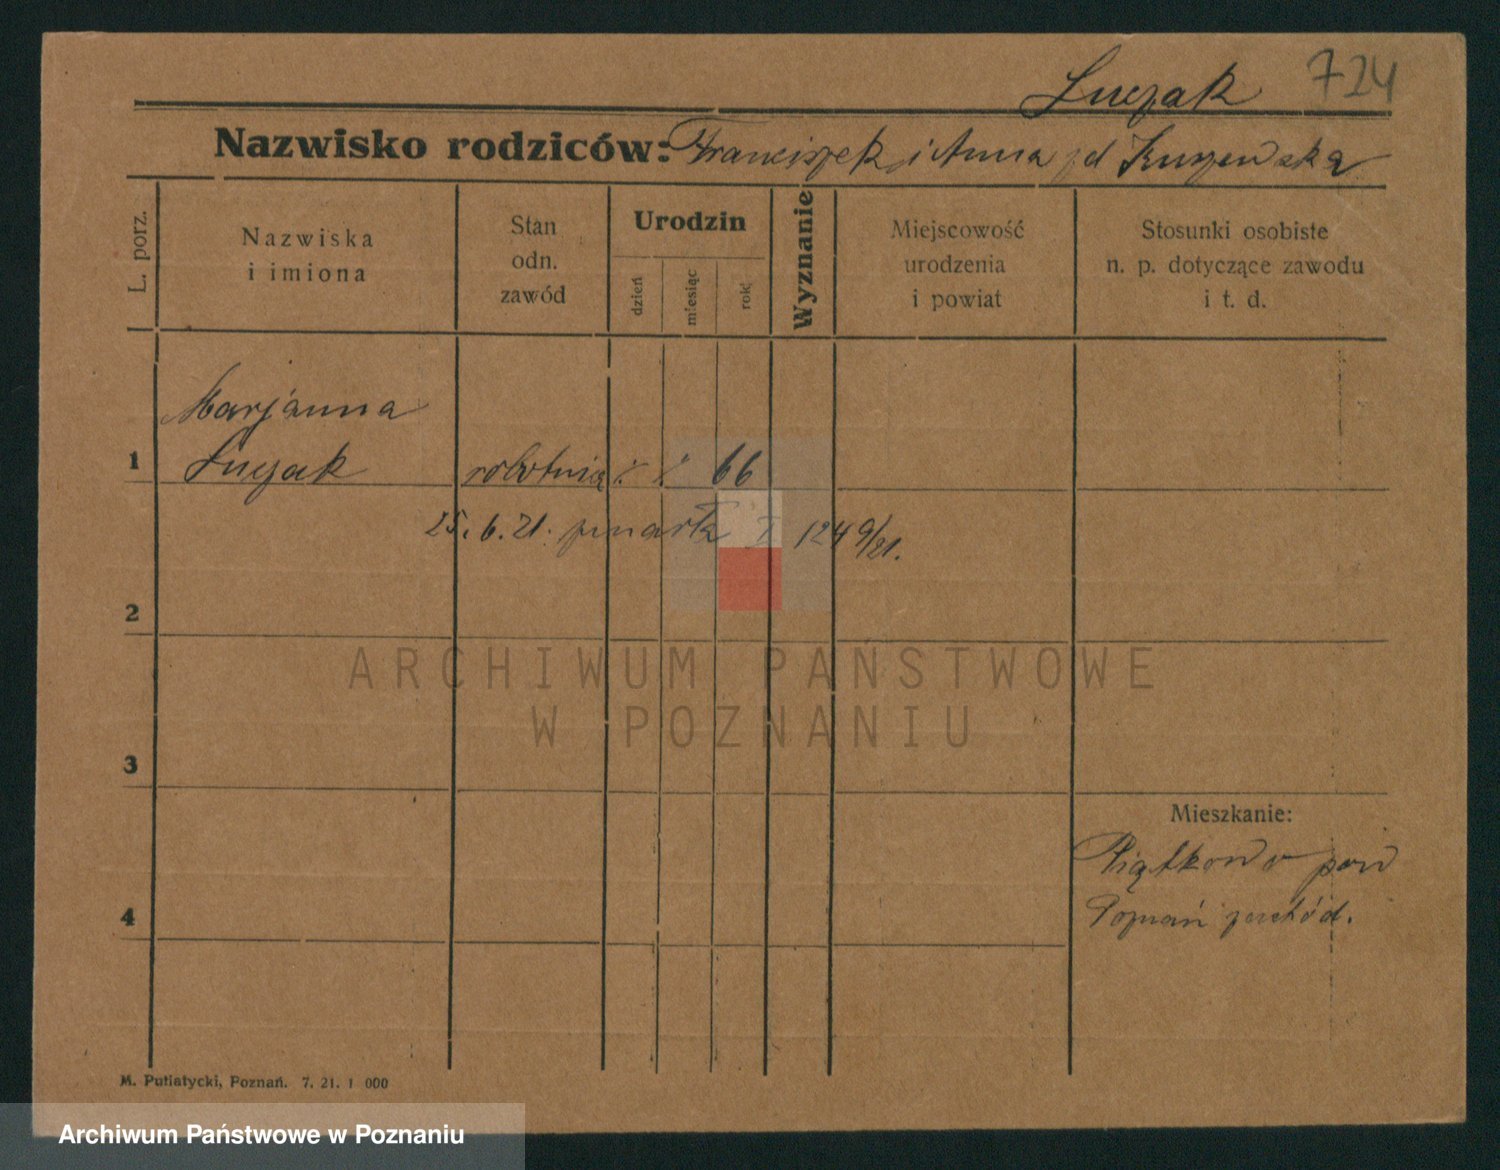 Łuczak 724
Nazwisko rodziców: Franciszek i Anna zd Kuszewska
L. porz.
Nazwiska
i imiona
Stan
odn.
zawód
Urodzin
dzień
miesiąc
rok
Wyznanie
Miejscowość
urodzenia
i powiat
Stosunki osobiste
n. p. dotyczące zawodu
i t. d.
Marjanna
1 Łuczak robotnica 66
25.6.21. zmarła I 1249/21.
2
3
4
ARCHIWUM PAŃSTWOWE
W POZNANIU
Mieszkanie:
Piątkowo pow
Poznań zachód.
M. Putiatycki, Poznań. 7. 21. 1 000
Archiwum Państwowe w Poznaniu